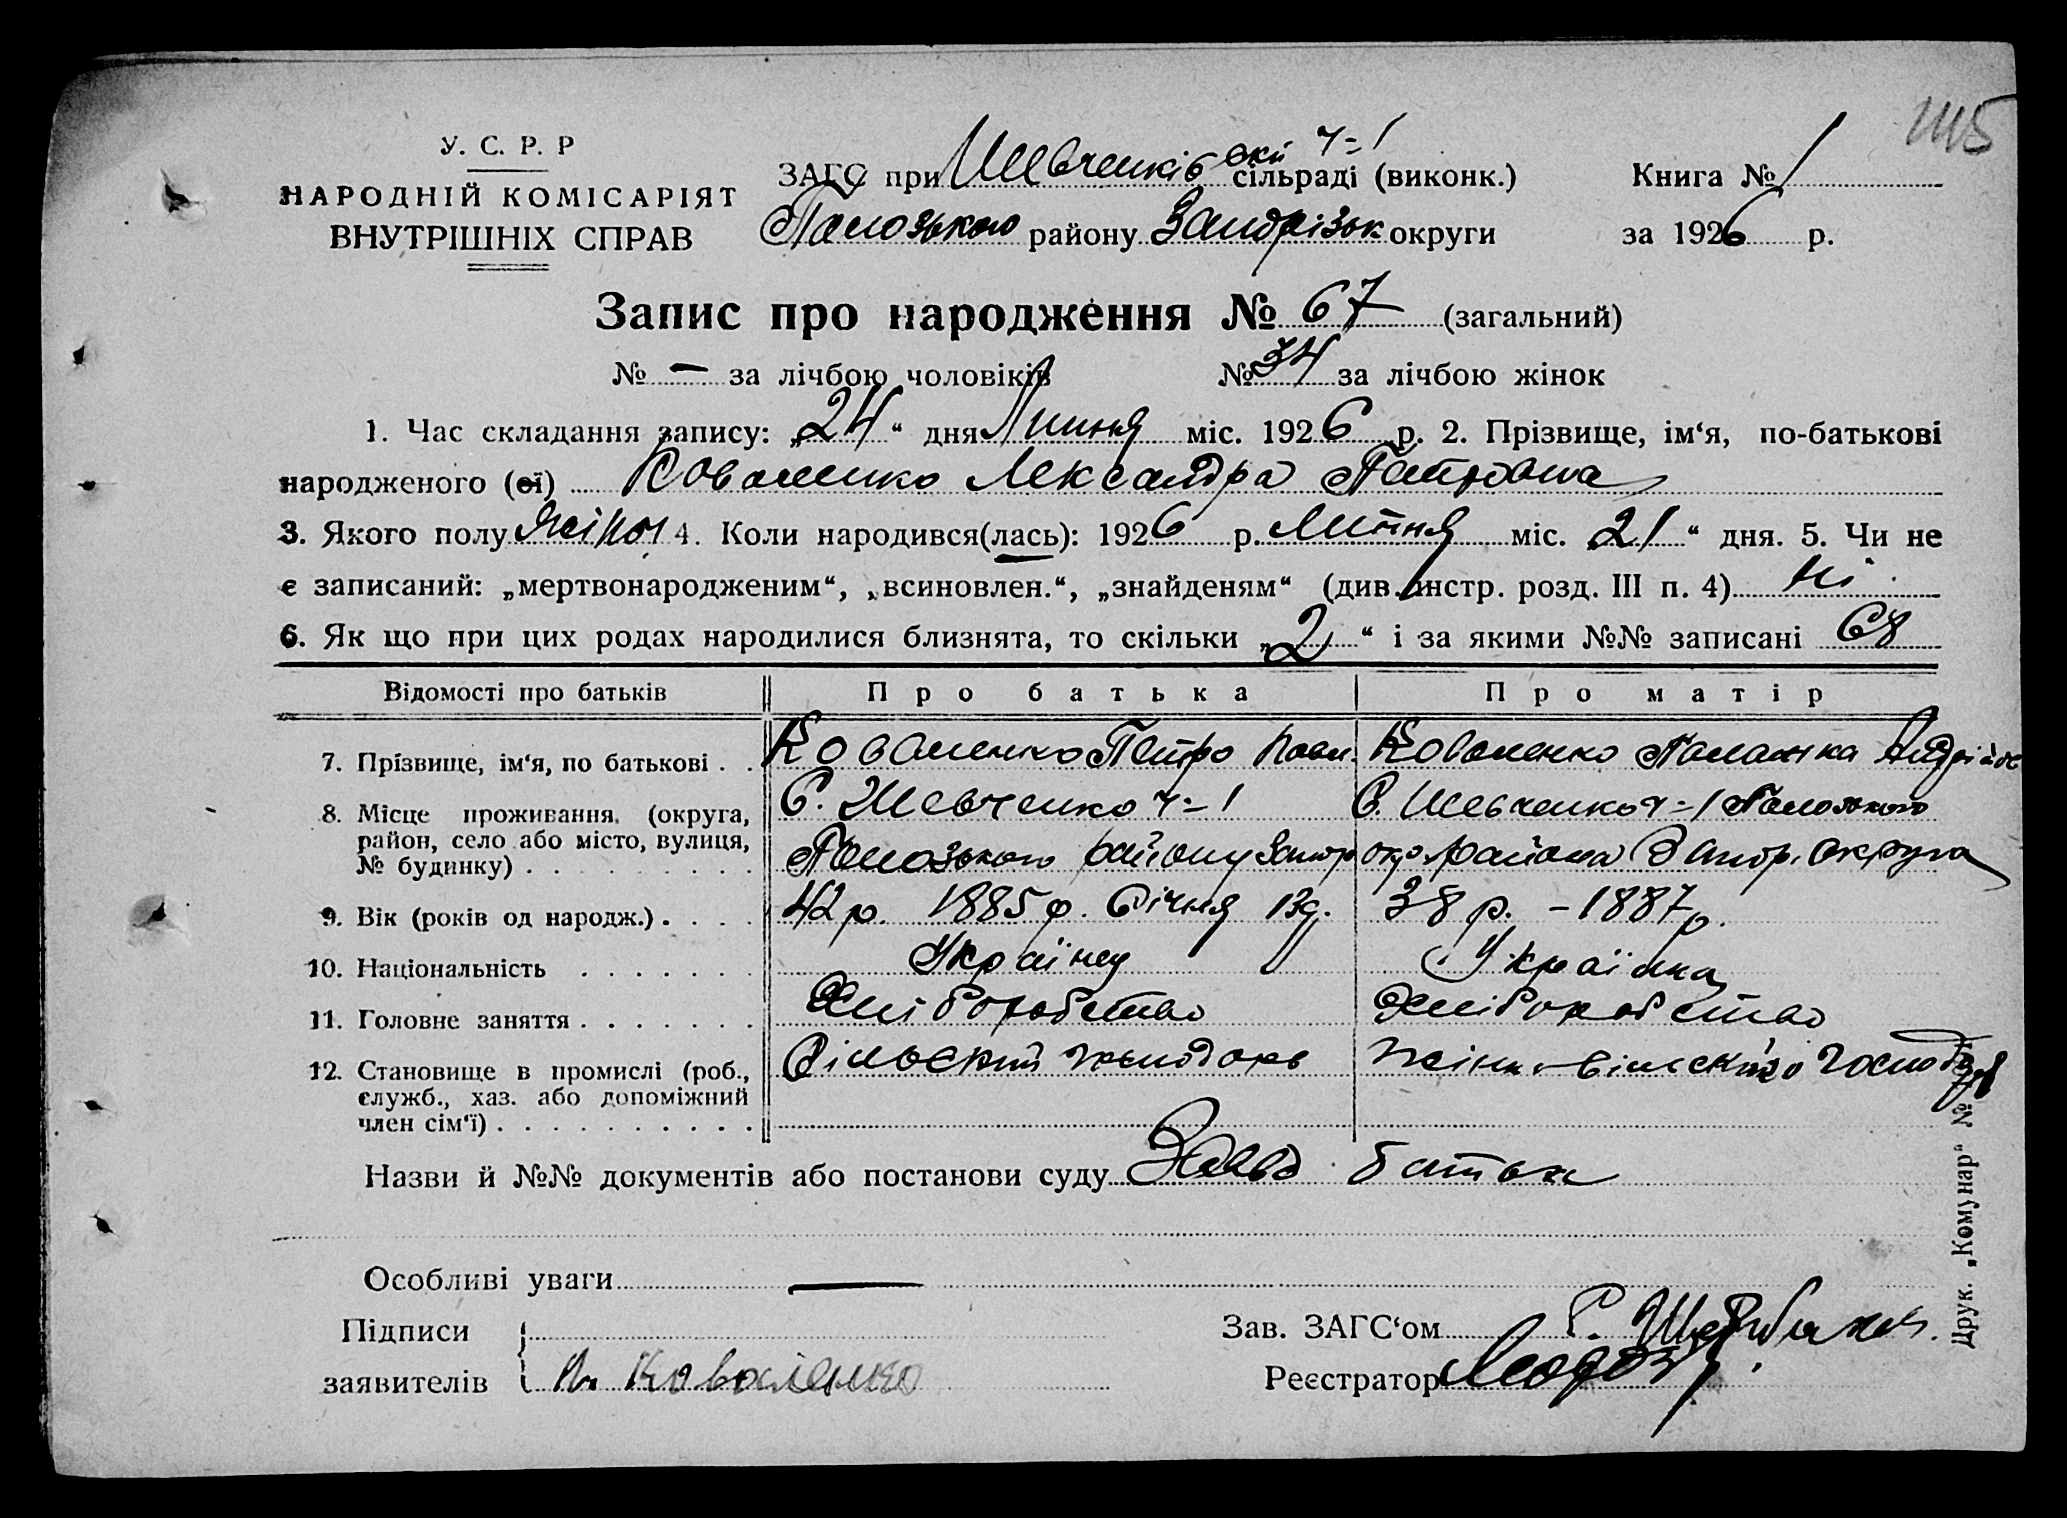 1115
У. С. Р. Р
НАРОДНІЙ КОМІСАРІЯТ
ВНУТРІШНІХ СПРАВ
ЗАГС при Шевченківській ч=1 сільраді (виконк.)
Пологського району Запорізьк округи
Книга № 1
за 1926 р.
Запис про народження № 67 (загальний)
№ — за лічбою чоловіків № 34 за лічбою жінок
1. Час складання запису: „24“ дня Липня міс. 1926 р. 2. Прізвище, ім‘я, по-батькові
народженого (ої) Коваленко Лександра Петровна
3. Якого полу жіноч 4. Коли народився(лась): 1926 р. Липня міс. „21“ дня. 5. Чи не
є записаний: „мертвонародженим“, „всиновлен.“, „знайденям“ (див. інстр. розд. III п. 4) Ні
6. Як що при цих родах народилися близнята, то скільки „2“ і за якими №№ записані 68
Відомості про батьків Про батька Про матір
7. Прізвище, ім‘я, по батькові . . Коваленко Петро Павл. Коваленко Палажка Андрійов
8. Місце проживання, (округа, район, село або місто, вулиця, № будинку) . . . . . . . . .
С. Шевченко ч=1 С. Шевченко ч=1 Пологського
Пологського району Запор окр. района Запор. Округа
9. Вік (років од народж.) . . . . 42 р. 1885 р. Січня 13д. 38 р. – 1887 р.
10. Національність . . . . . . . Українец Українка
11. Головне заняття . . . . . . . Хліборобство Хліборобство
12. Становище в промислі (роб., служб., хаз. або допоміжний член сім‘ї) . . . . . . . . . .
Сільский господарь жінка сільского господаря
Назви й №№ документів або постанови суду Заява батька
Особливі уваги —
Підписи
заявителів П. Коваленко
Зав. ЗАГС‘ом
Реєстратор
Друк. „Комунар“ №